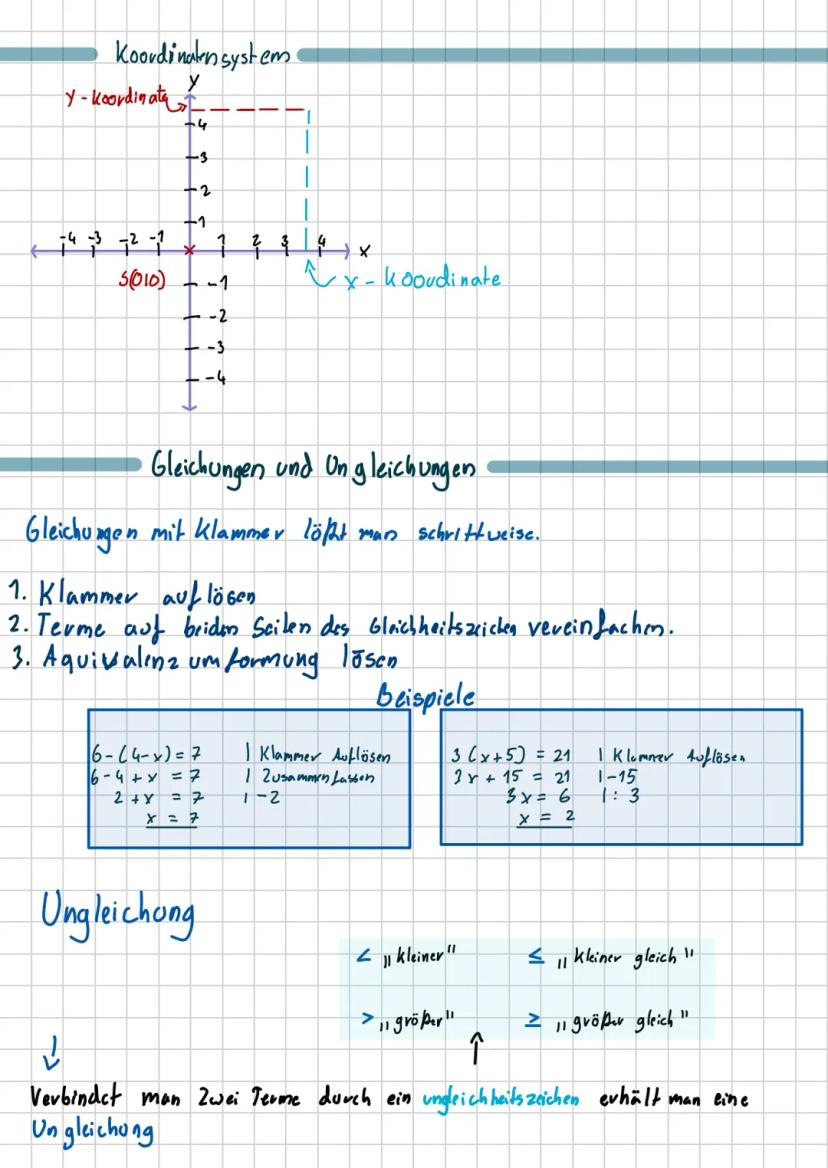 Koordinatensystem
y
y-Koordinate
4
3
2
1
-4 -3 -2 -1 1 2 3 4 x
S(0|0)
x-Koordinate
-1
-2
-3
-4
Gleichungen und Ungleichungen
Gleichungen mit Klammer lößt man schrittweise.
1. Klammer auflösen
2. Terme auf beiden Seiten des Gleichheitszeichen vereinfachen.
3. Äquivalenzumformung lösen
Beispiele
6-(4-x) = 7 | Klammer Auflösen
6-4+x = 7 | Zusammenfassen
2+x = 7 | -2
x = 7
3(x+5) = 21 | Klammer Auflösen
3x + 15 = 21 | -15
3x = 6 | : 3
x = 2
Ungleichung
< „kleiner" ≤ „kleiner gleich"
> „größer" ≥ „größer gleich"
Verbindet man zwei Terme durch ein ungleichheitszeichen erhält man eine
Ungleichung